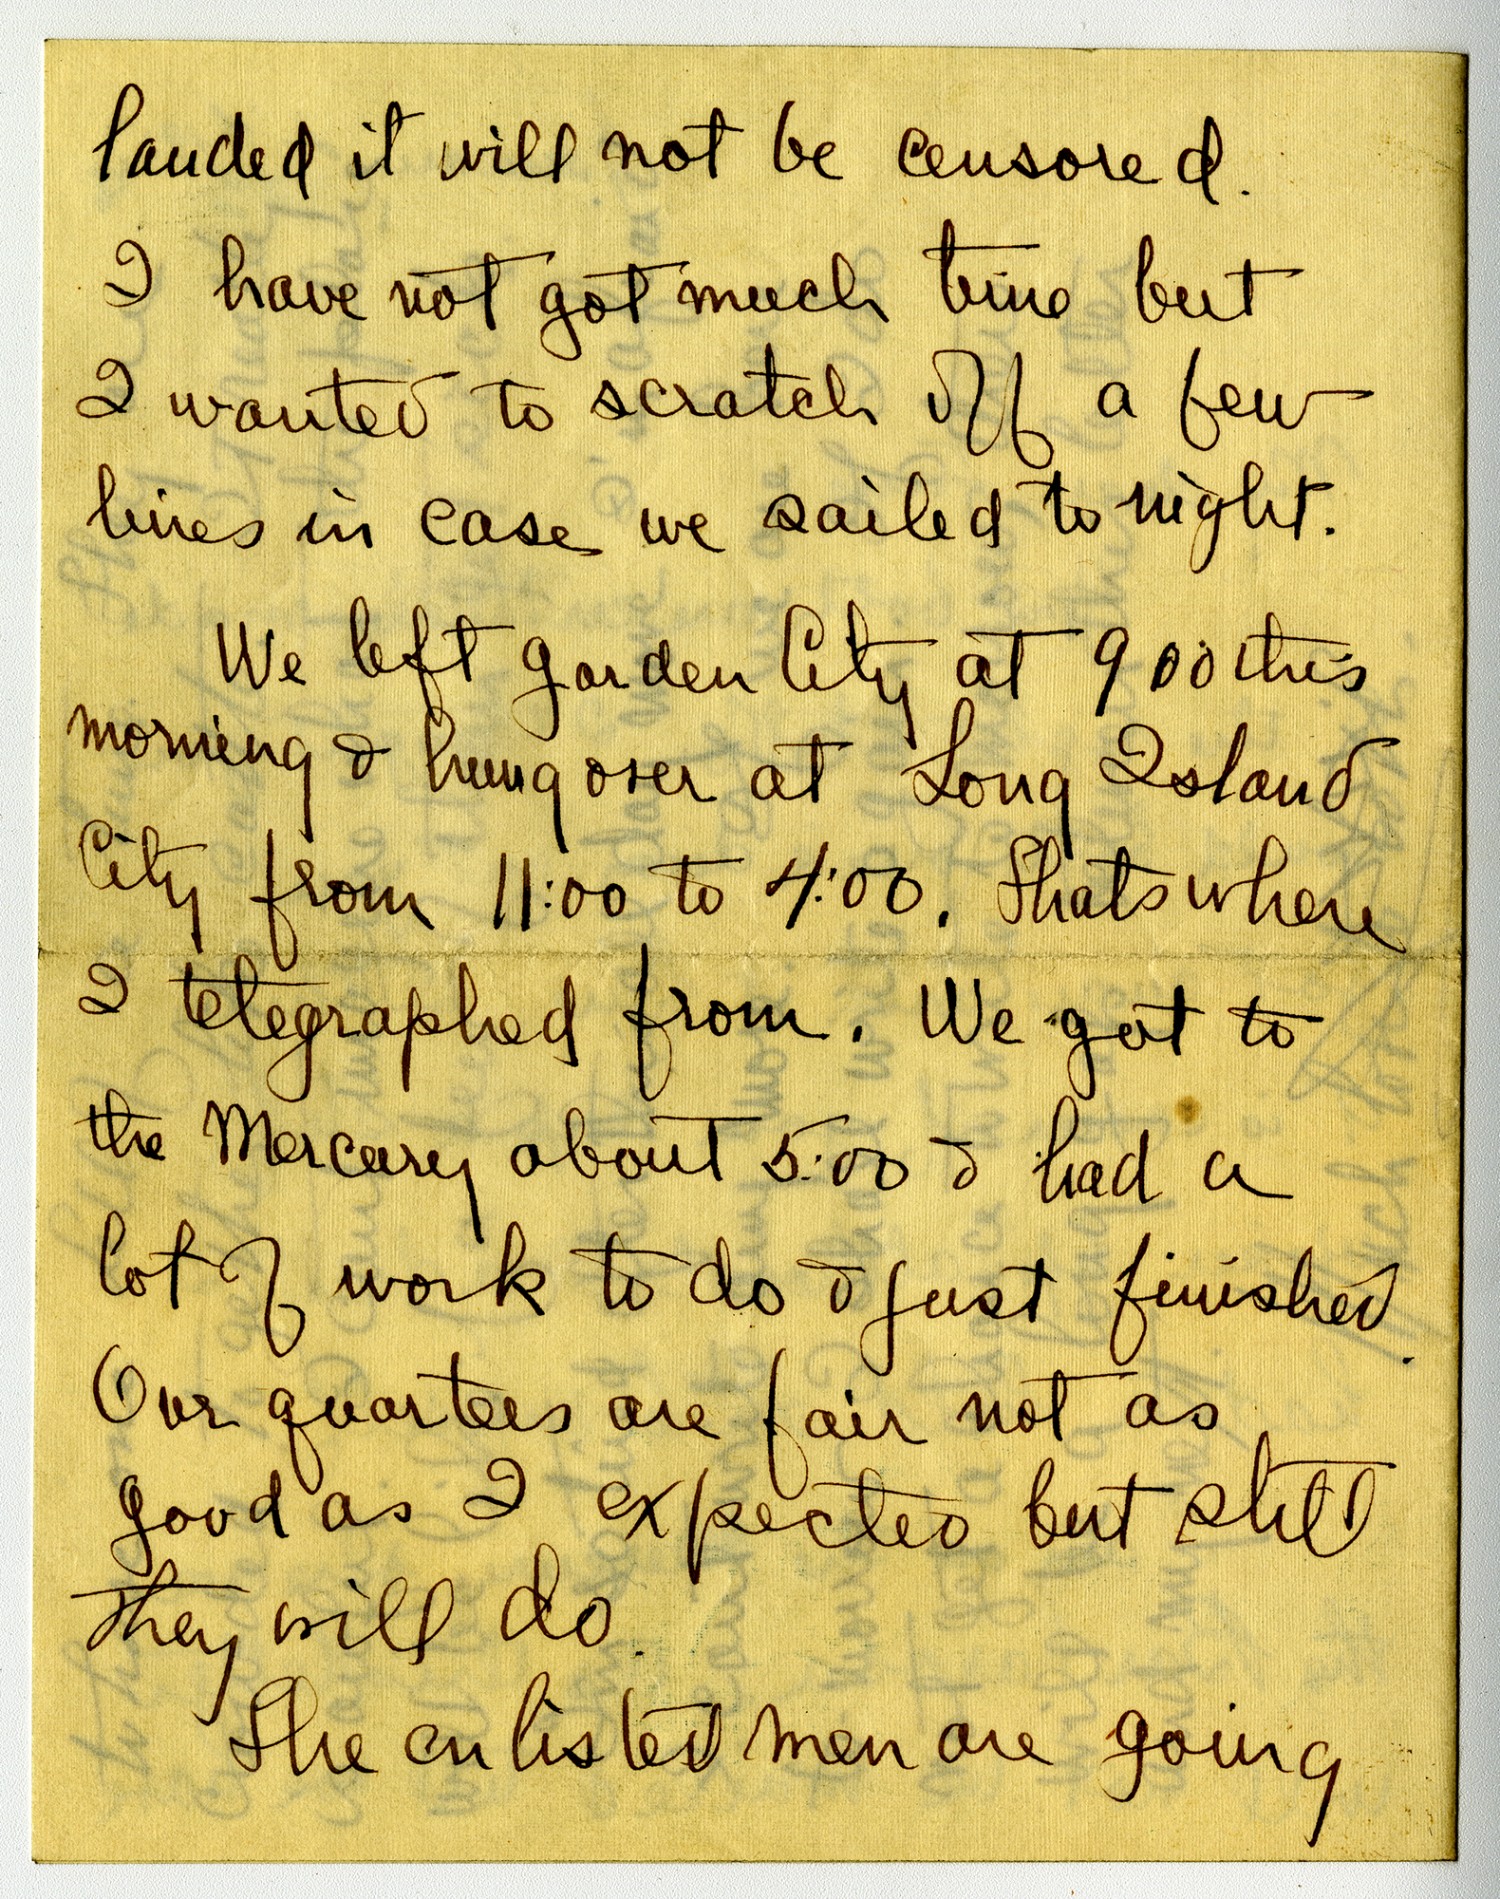 landed it will not be censored.
I have not got much time but
I wanted to scratch off a few
lines in case we sailed to night.
We left Garden City at 9 00 this
morning & hung over at Long Island
City from 11:00 to 4:00. Thats where
I telegraphed from. We got to
the Mercury about 5:00 & had a
lot of work to do & just finished.
Our quarters are fair not as
good as I expected but still
they will do.
The enlisted men are going